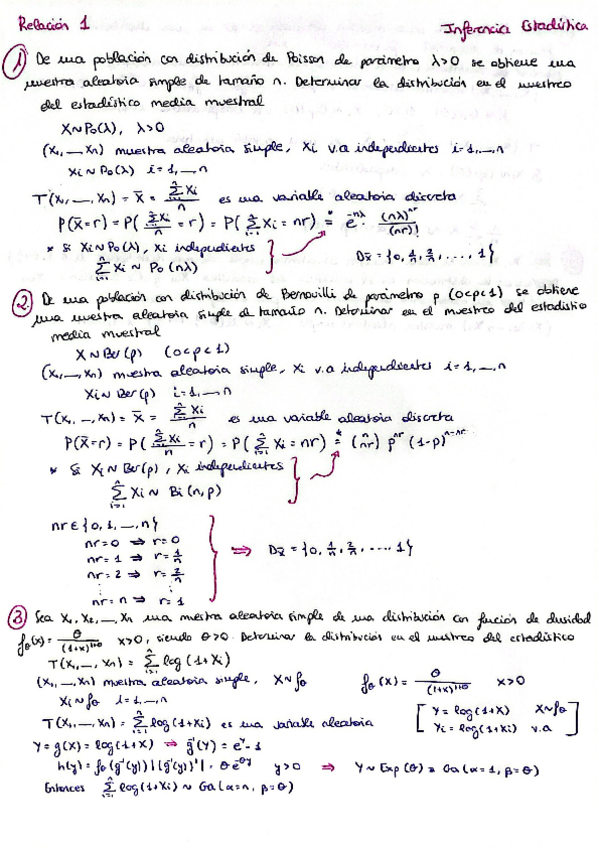 Relación 1 Inferencia Estadística
1) De una población con distribución de Poisson de parámetro λ>0 se obtiene una
muestra aleatoria simple de tamaño n. Determinar la distribución en el muestreo
del estadístico media muestral
X~Po(λ), λ>0
(X₁,_,Xn) muestra aleatoria simple, Xi v.a independientes i=1,_,n
Xi ~ Po(λ) i=1,_,n
T(X₁,_,Xn) = X̄ = Σᵢ₌₁ⁿ Xi / n es una variable aleatoria discreta
P(X̄=r) = P(Σᵢ₌₁ⁿ Xi / n = r) = P(Σᵢ₌₁ⁿ Xi = nr) =* e^(-nλ) (nλ)^(nr) / (nr)!
* Si Xi~Po(λ), Xi independientes
Σᵢ₌₁ⁿ Xi ~ Po(nλ)
Dx̄ = {0, 1/n, 2/n, ...., 1}
2) De una población con distribución de Bernouilli de parámetro p (0<p<1) se obtiene
una muestra aleatoria simple de tamaño n. Determinar en el muestreo del estadístio
media muestral
X ~ Ber(p) (0<p<1)
(X₁,_,Xn) muestra aleatoria simple, Xi v.a independientes i=1,_,n
Xi ~ Ber(p) i=1,_,n
T(X₁,_,Xn) = X̄ = Σᵢ₌₁ⁿ Xi / n es una variable aleatoria discreta
P(X̄=r) = P(Σᵢ₌₁ⁿ Xi / n = r) = P(Σᵢ₌₁ⁿ Xi = nr) =* (n nr) p^(nr) (1-p)^(n-nr)
* Si Xi ~ Ber(p), Xi independientes
Σᵢ₌₁ⁿ Xi ~ Bi(n,p)
nr ∈ {0,1,_,n}
nr=0 ⇒ r=0
nr=1 ⇒ r=1/n
nr=2 ⇒ r=2/n
⋮ ⋮
nr=n ⇒ r=1
⇒ Dx̄ = {0, 1/n, 2/n, .... 1}
3) Sea X₁, X₂, _, Xn una muestra aleatoria simple de una distribución con función de densidad
fθ(x) = θ / (1+x)^(1+θ) x>0, siendo θ>0. Determinar la distribución en el muestreo del estadístico
T(X₁,_,Xn) = Σᵢ₌₁ⁿ log(1+Xi)
(X₁,_,Xn) muestra aleatoria simple, X~fθ fθ(x) = θ / (1+x)^(1+θ) x>0
Xi ~ fθ i=1,_,n
T(X₁,_,Xn) = Σᵢ₌₁ⁿ log(1+Xi) es una variable aleatoria
[Y = log(1+X) X~fθ
Yi = log(1+Xi) v.a]
Y = g(X) = log(1+X) ⇒ g⁻¹(Y) = e^y - 1
h(y) = fθ(g⁻¹(y)) |(g⁻¹(y))'| = θe^(-θy) y>0 ⇒ Y ~ Exp(θ) ≡ Ga(α=1, β=θ)
Entonces Σᵢ₌₁ⁿ log(1+Xi) ~ Ga(α=n, β=θ)